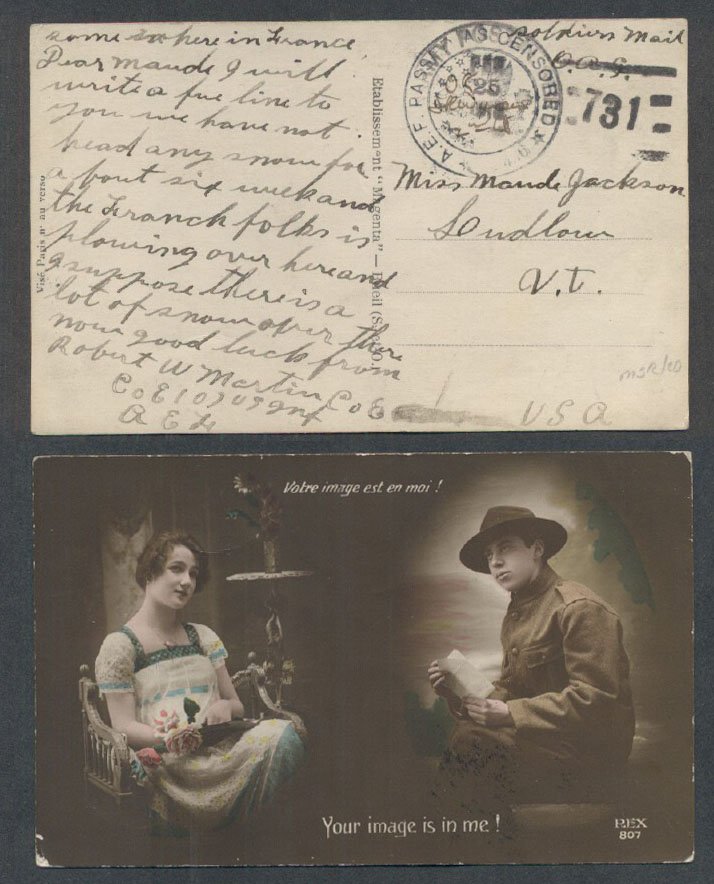 some where in France
Dear Maude I will
write a fue line to
you we have not
head any snow for
a bout six week and
the Franch folks is
plowing over here and
I suppose there is a
lot of snow over there
now good luck from
Robert W Martin Co E
Co E 107 Inf
A E F
Visé Paris nº au verso
Etablissement "Magenta" — (S.-&-O.
A.E.F. PASSED AS CENSORED
25
731
Soldiers Mail
Miss Maude Jackson
Ludlow
V.T.
U S A
Votre image est en moi !
Your image is in me !
REX
807